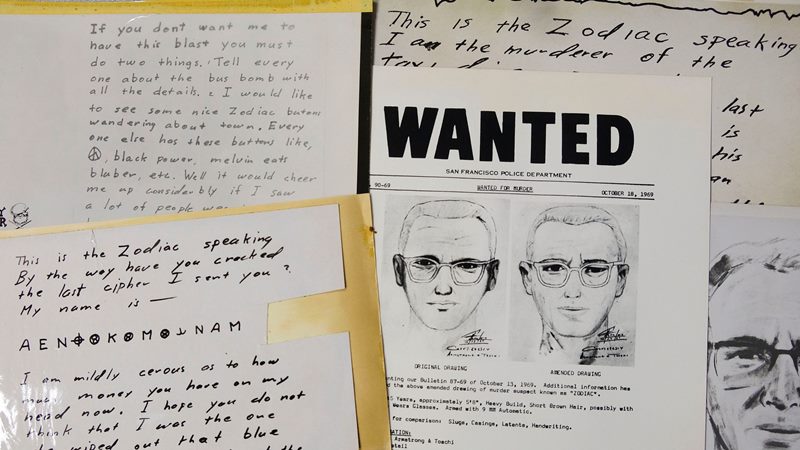 If you dont want me to
have this blast you must
do two things. Tell every
one about the bus bomb with
all the details. 2 I would like
to see some nice Zodiac butons
wandering about town. Every
one else has these buttons like,
☮, black power, melvin eats
bluber, etc. Well it would cheer
me up considerbly if I saw
a lot of people
This is the Zodiac speaking
By the way have you cracked
the last cipher I sent you?
My name is —
A E N ⊕ ⊗ K ⊗ M ⊗ ⅃ N A M
I am mildly cerous as to how
much money you have on my
head now. I hope you do not
think that I was the one
wiped out that blue
This is the Zodiac speaking
I am the murderer of the
last
is
his
WANTED
SAN FRANCISCO POLICE DEPARTMENT
90-69 WANTED FOR MURDER OCTOBER 18, 1969
ORIGINAL DRAWING AMENDED DRAWING
our Bulletin 87-69 of October 13, 1969. Additional information has
the above amended drawing of murder suspect known as "ZODIAC".
Years, approximately 5'8", Heavy Build, Short Brown Hair, possibly with
Wears Glasses. Armed with 9 MM Automatic.
for comparison: Slugs, Casings, Latents, Handwriting.
Armstrong & Toschi